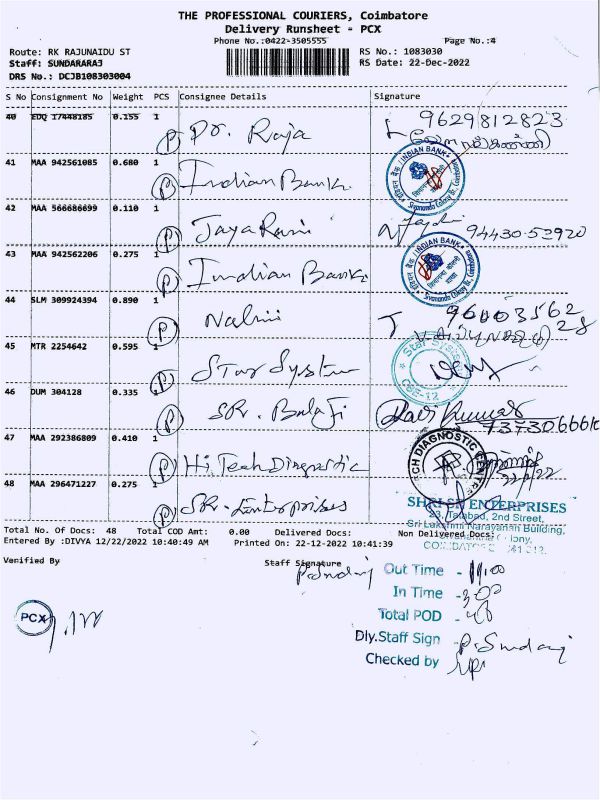 THE PROFESSIONAL COURIERS, Coimbatore
Delivery Runsheet - PCX
Phone No.:0422-3505555 Page No.:4
Route: RK RAJUNAIDU ST RS No.: 1083030
Staff: SUNDARARAJ RS Date: 22-Dec-2022
DRS No.: DCJB108303004
S No Consignment No Weight PCS Consignee Details Signature
40 EDQ 17448185 0.155 1 P Dr. Raja 9629812823
41 MAA 942561085 0.680 1 P Indian Bank INDIAN BANK
42 MAA 566686699 0.110 1 P JayaRani 94430-52920
43 MAA 942562206 0.275 1 P Indian Bank INDIAN BANK
44 SLM 309924394 0.890 1 P Nalini
45 MTR 2254642 0.595 1 P Star System Star System CBE-12
46 DUM 304128 0.335 1 P SR. Balaji Ravi Kumar
47 MAA 292386809 0.410 1 P Hi Tech Diagnostic CH DIAGNOSTIC CENTRE
48 MAA 296471227 0.275 1 P SR. Enterprises
SHRI SR ENTERPRISES
2nd Street,
Sri Lakshmi Narayanan Building,
Total No. Of Docs: 48 Total COD Amt: 0.00 Delivered Docs: Non Delivered Docs:
Entered By :DIVYA 12/22/2022 10:40:49 AM Printed On: 22-12-2022 10:41:39
Verified By Staff Signature
Out Time - 11.00
In Time - 3.00
Total POD - 48
Dly.Staff Sign - P. Sundaraj
Checked by
PCX